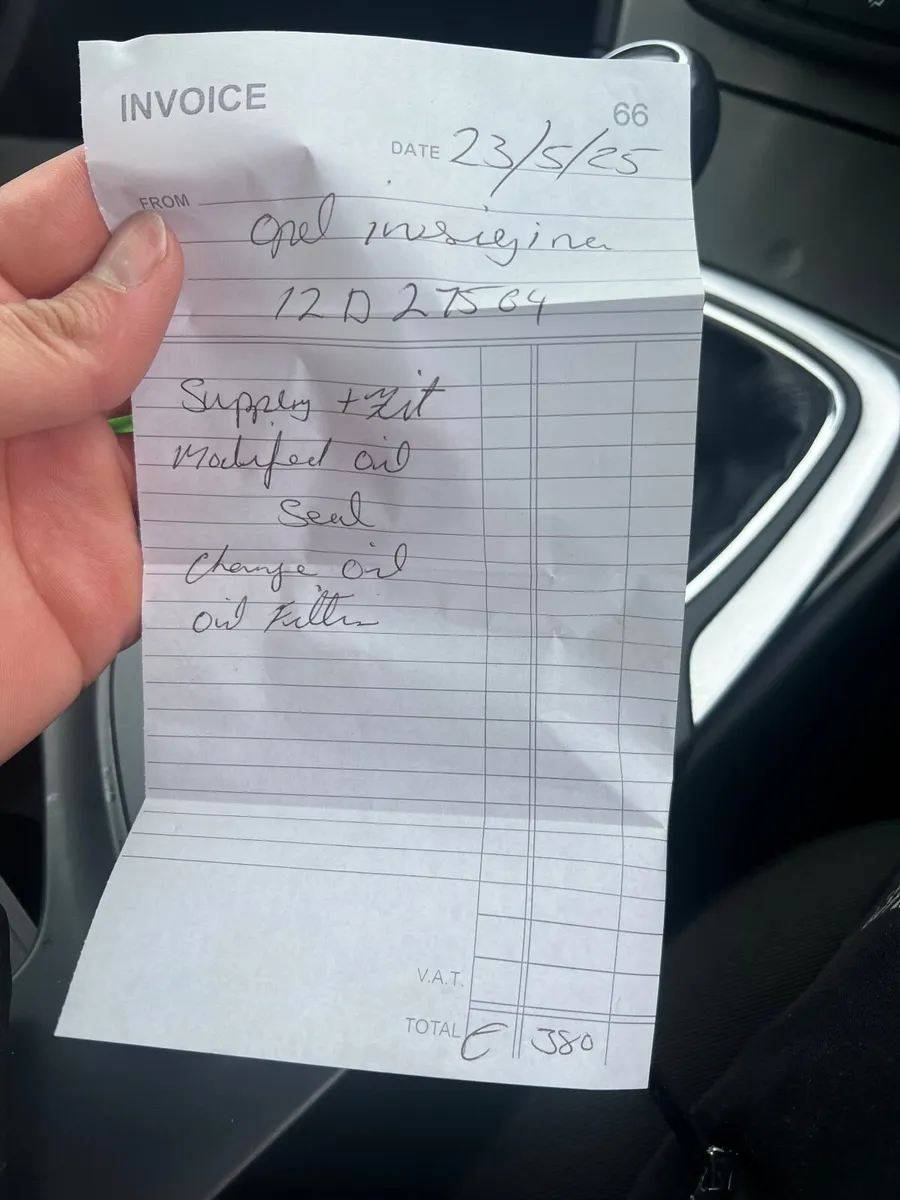 INVOICE
66
DATE 23/5/25
FROM
Opel insigina
12 D 27564
Supply + Fit
Modified oil
Seal
Change oil
oil Filter
V.A.T.
TOTAL € 380